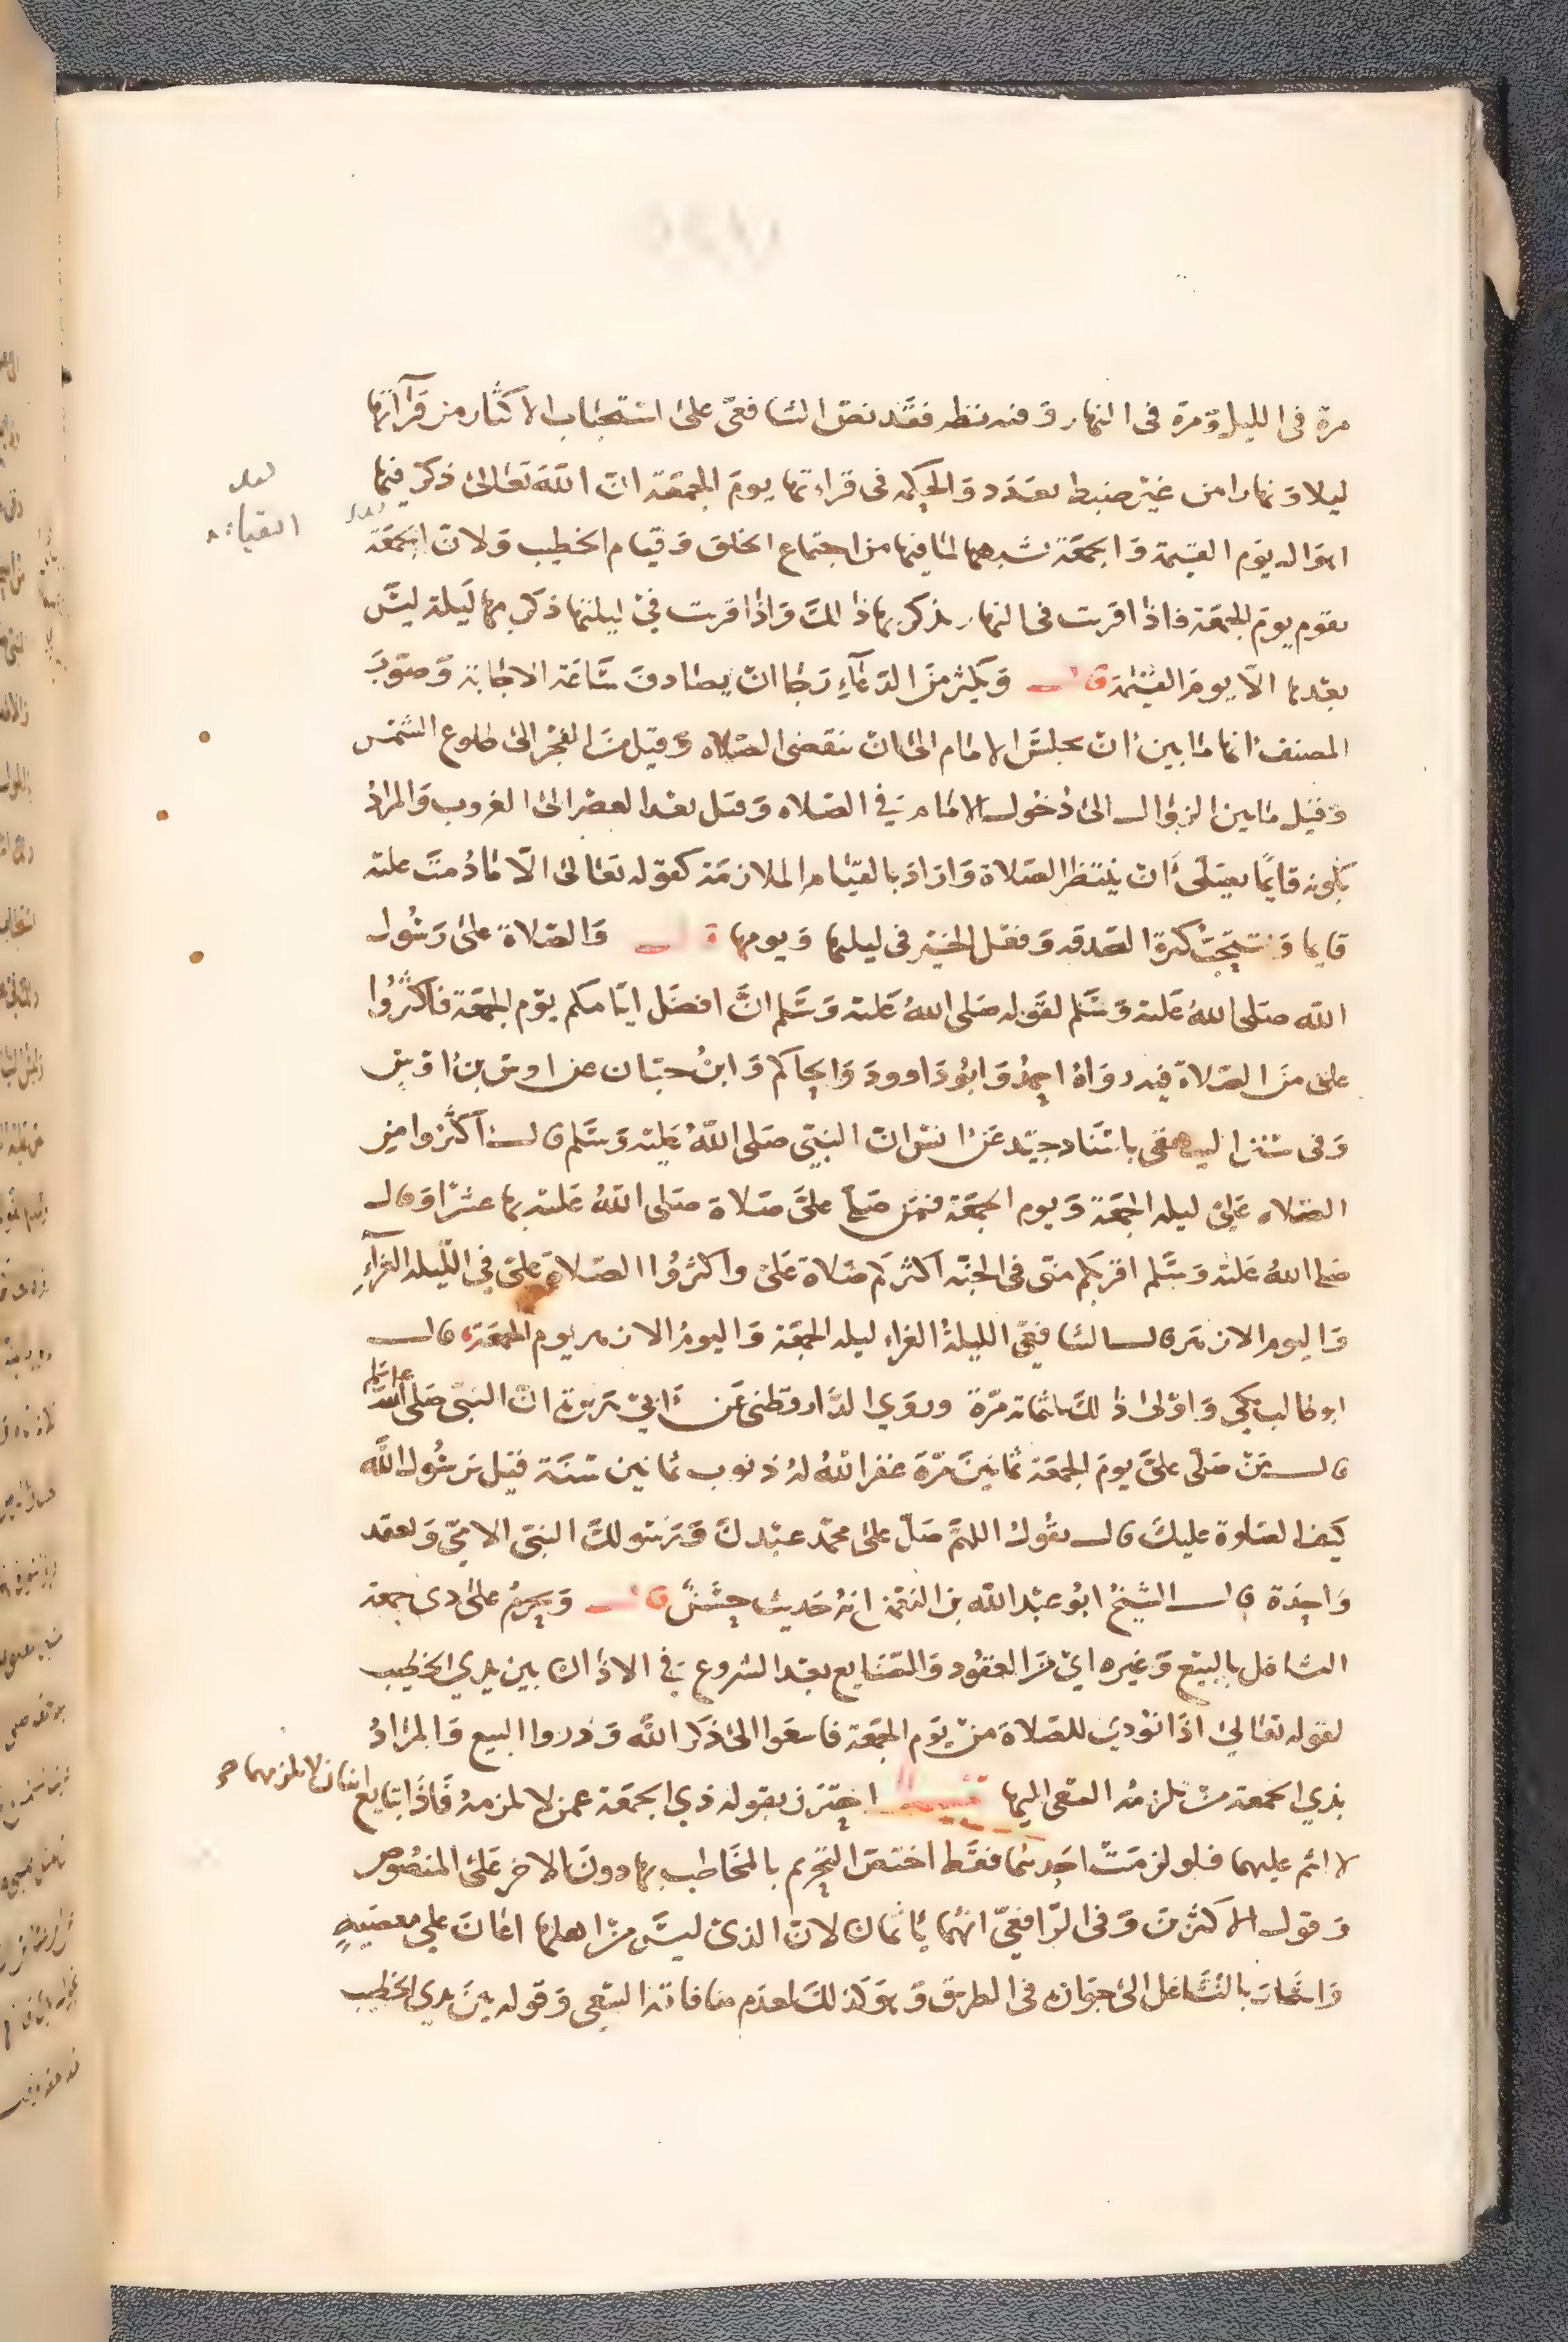 مرة في الليل ومرة في النهار وفيه نظر فقد نص الشافعي على استحباب الاكثار من قرآتها
ليلا ونهارا من غير ضبط بعدد والحكمة في قراءتها يوم الجمعة ان الله تعالى ذكر فيها
لعله
القيامة
اهوال يوم القيمة والجمعة تشبهها لما فيها من اجتماع الخلق وقيام الخطيب ولان الجمعة
تقوم يوم الجمعة فاذا قريت في النهار يذكر بها ذلك واذا قريت في ليلتها ذكر بها ليلة ليس
بعدها الا يوم القيمة قال ويكثر من الدعاء رجا ان يصادف ساعة الاجابة وصوب
المصنف انها ما بين ان يجلس الامام الى ان تنقضي الصلاه وقيل من الفجر الى طلوع الشمس
وقيل ما بين الزوال الى دخول الامام في الصلاه وقيل بعد العصر الى الغروب والمراد
بكونه قايما يصلى ان ينتظر الصلاة واراد بالقيام الملازمة كقوله تعالى الا ما دمت عليه
قايما وتستحب كثرة الصدقه وفعل الخير في ليلها ويومها قال والصلاة على رسول
الله صلى الله عليه وسلم لقوله صلى الله عليه وسلم ان افضل ايامكم يوم الجمعة فاكثروا
على من الصلاة فيه رواه احمد وابو داوود والحاكم وابن حبان عن اوس بن اوس
وفي سنن البيهقي باسناد جيد عن انس ان النبي صلى الله عليه وسلم قال اكثروا من
الصلاه علي ليلة الجمعة ويوم الجمعة فمن صلى على صلاة صلى الله عليه بها عشرا وقال
صلى الله عليه وسلم اقربكم مني في الجنه اكثركم صلاة على واكثروا الصلاة على في الليلة الغرآء
واليوم الازهر قال الشافعي الليلة الغراء ليلة الجمعة واليوم الازهر يوم الجمعة قال
ابو طالب مكي واولى ذلك ثلثمائة مرة وروي الدارقطني عن ابي هريرة ان النبي صلى الله
عليه وسلم
قال من صلى على يوم الجمعة ثمانين مرة غفر الله له ذنوب ثمانين سنة قيل يرسول الله
كيف الصلوة عليك قال يقول اللهم صل على محمد عبدك ورسولك النبي الامي وتعقد
واحدة قال الشيخ ابو عبد الله بن النعمن انه حديث حسن قال ويحرم على ذي جمعة
التشاغل بالبيع وغيره اي من العقود والصنايع بعد الشروع في الاذان بين يدي الخطيب
لقوله تعالى اذا نودي للصلاة من يوم الجمعة فاسعوا الى ذكر الله وذروا البيع والمراد
بذي الجمعة من تلزمه السعى اليها احترز بقوله ذي الجمعة عمن لا تلزمه فاذا تبايع اثنان لا تلزمهما صح
لا اثم عليهما فلو لزمت احدهما فقط اختص التحريم بالمخاطب بها دون الاخر على المنصوص
وقول الاكثرين وفي الرافعي انهما ياثمان لان الذى ليس من اهلها اعان على معصيةٍ
واشار بالتشاغل الى جوازه في الطريق وهو كذلك لعدم منافاته السعي وقوله بين يدي الخطيب